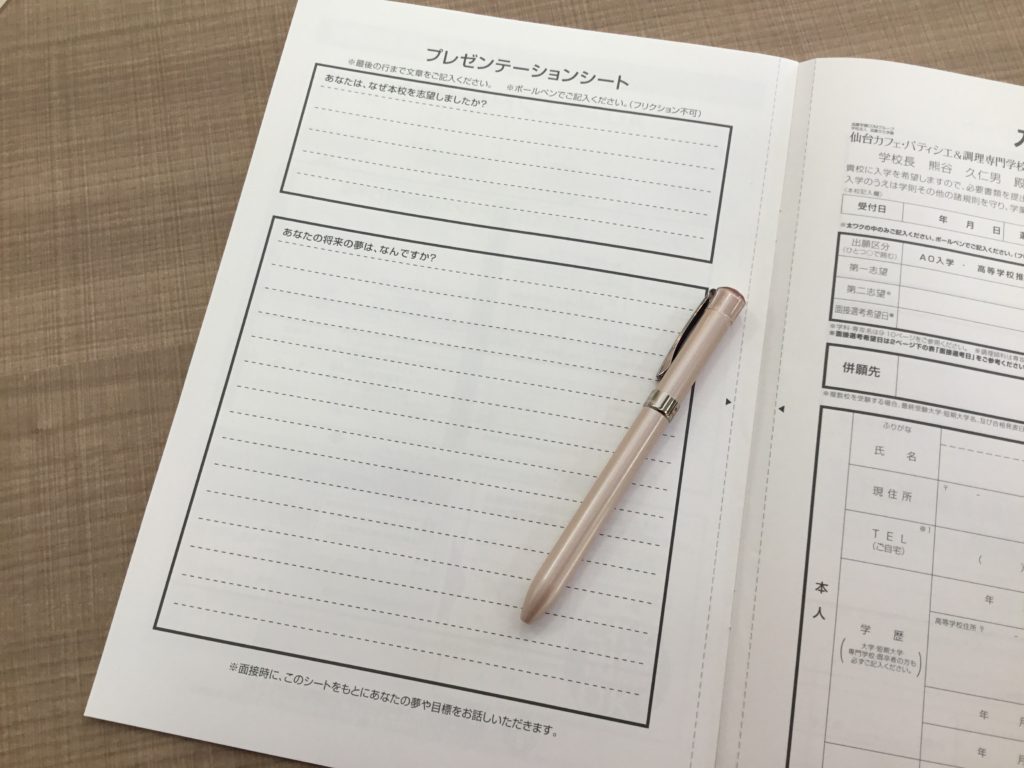 プレゼンテーションシート
※最後の行まで文章をご記入ください。 ※ボールペンでご記入ください。(フリクション不可)
あなたは、なぜ本校を志望しましたか?
あなたの将来の夢は、なんですか?
※面接時に、このシートをもとにあなたの夢や目標をお話しいただきます。
仙台カフェ・パティシエ&調理専門学校
学校長 熊谷 久仁男 殿
貴校に入学を希望しますので、必要書類を提出
入学のうえは学則その他の諸規則を守り、学業
〈本校記入欄〉
受付日 年 月 日
※太ワクの中のみご記入ください。ボールペンでご記入ください。
出願区分
(ひとつ○で囲む)
AO入学 ・ 高等学校推
第一志望
第二志望※
面接選考希望日※
※面接選考希望日は2ページ下の表「面接選考日」をご参考ください
併願先
本人
ふりがな
氏 名
現住所
〒 -
TEL
(ご自宅)
※1
( )
学 歴
大学・短期大学・
専門学校・既卒者の方も
必ずご記入ください。
年
高等学校住所 〒 -
年 月
年 月